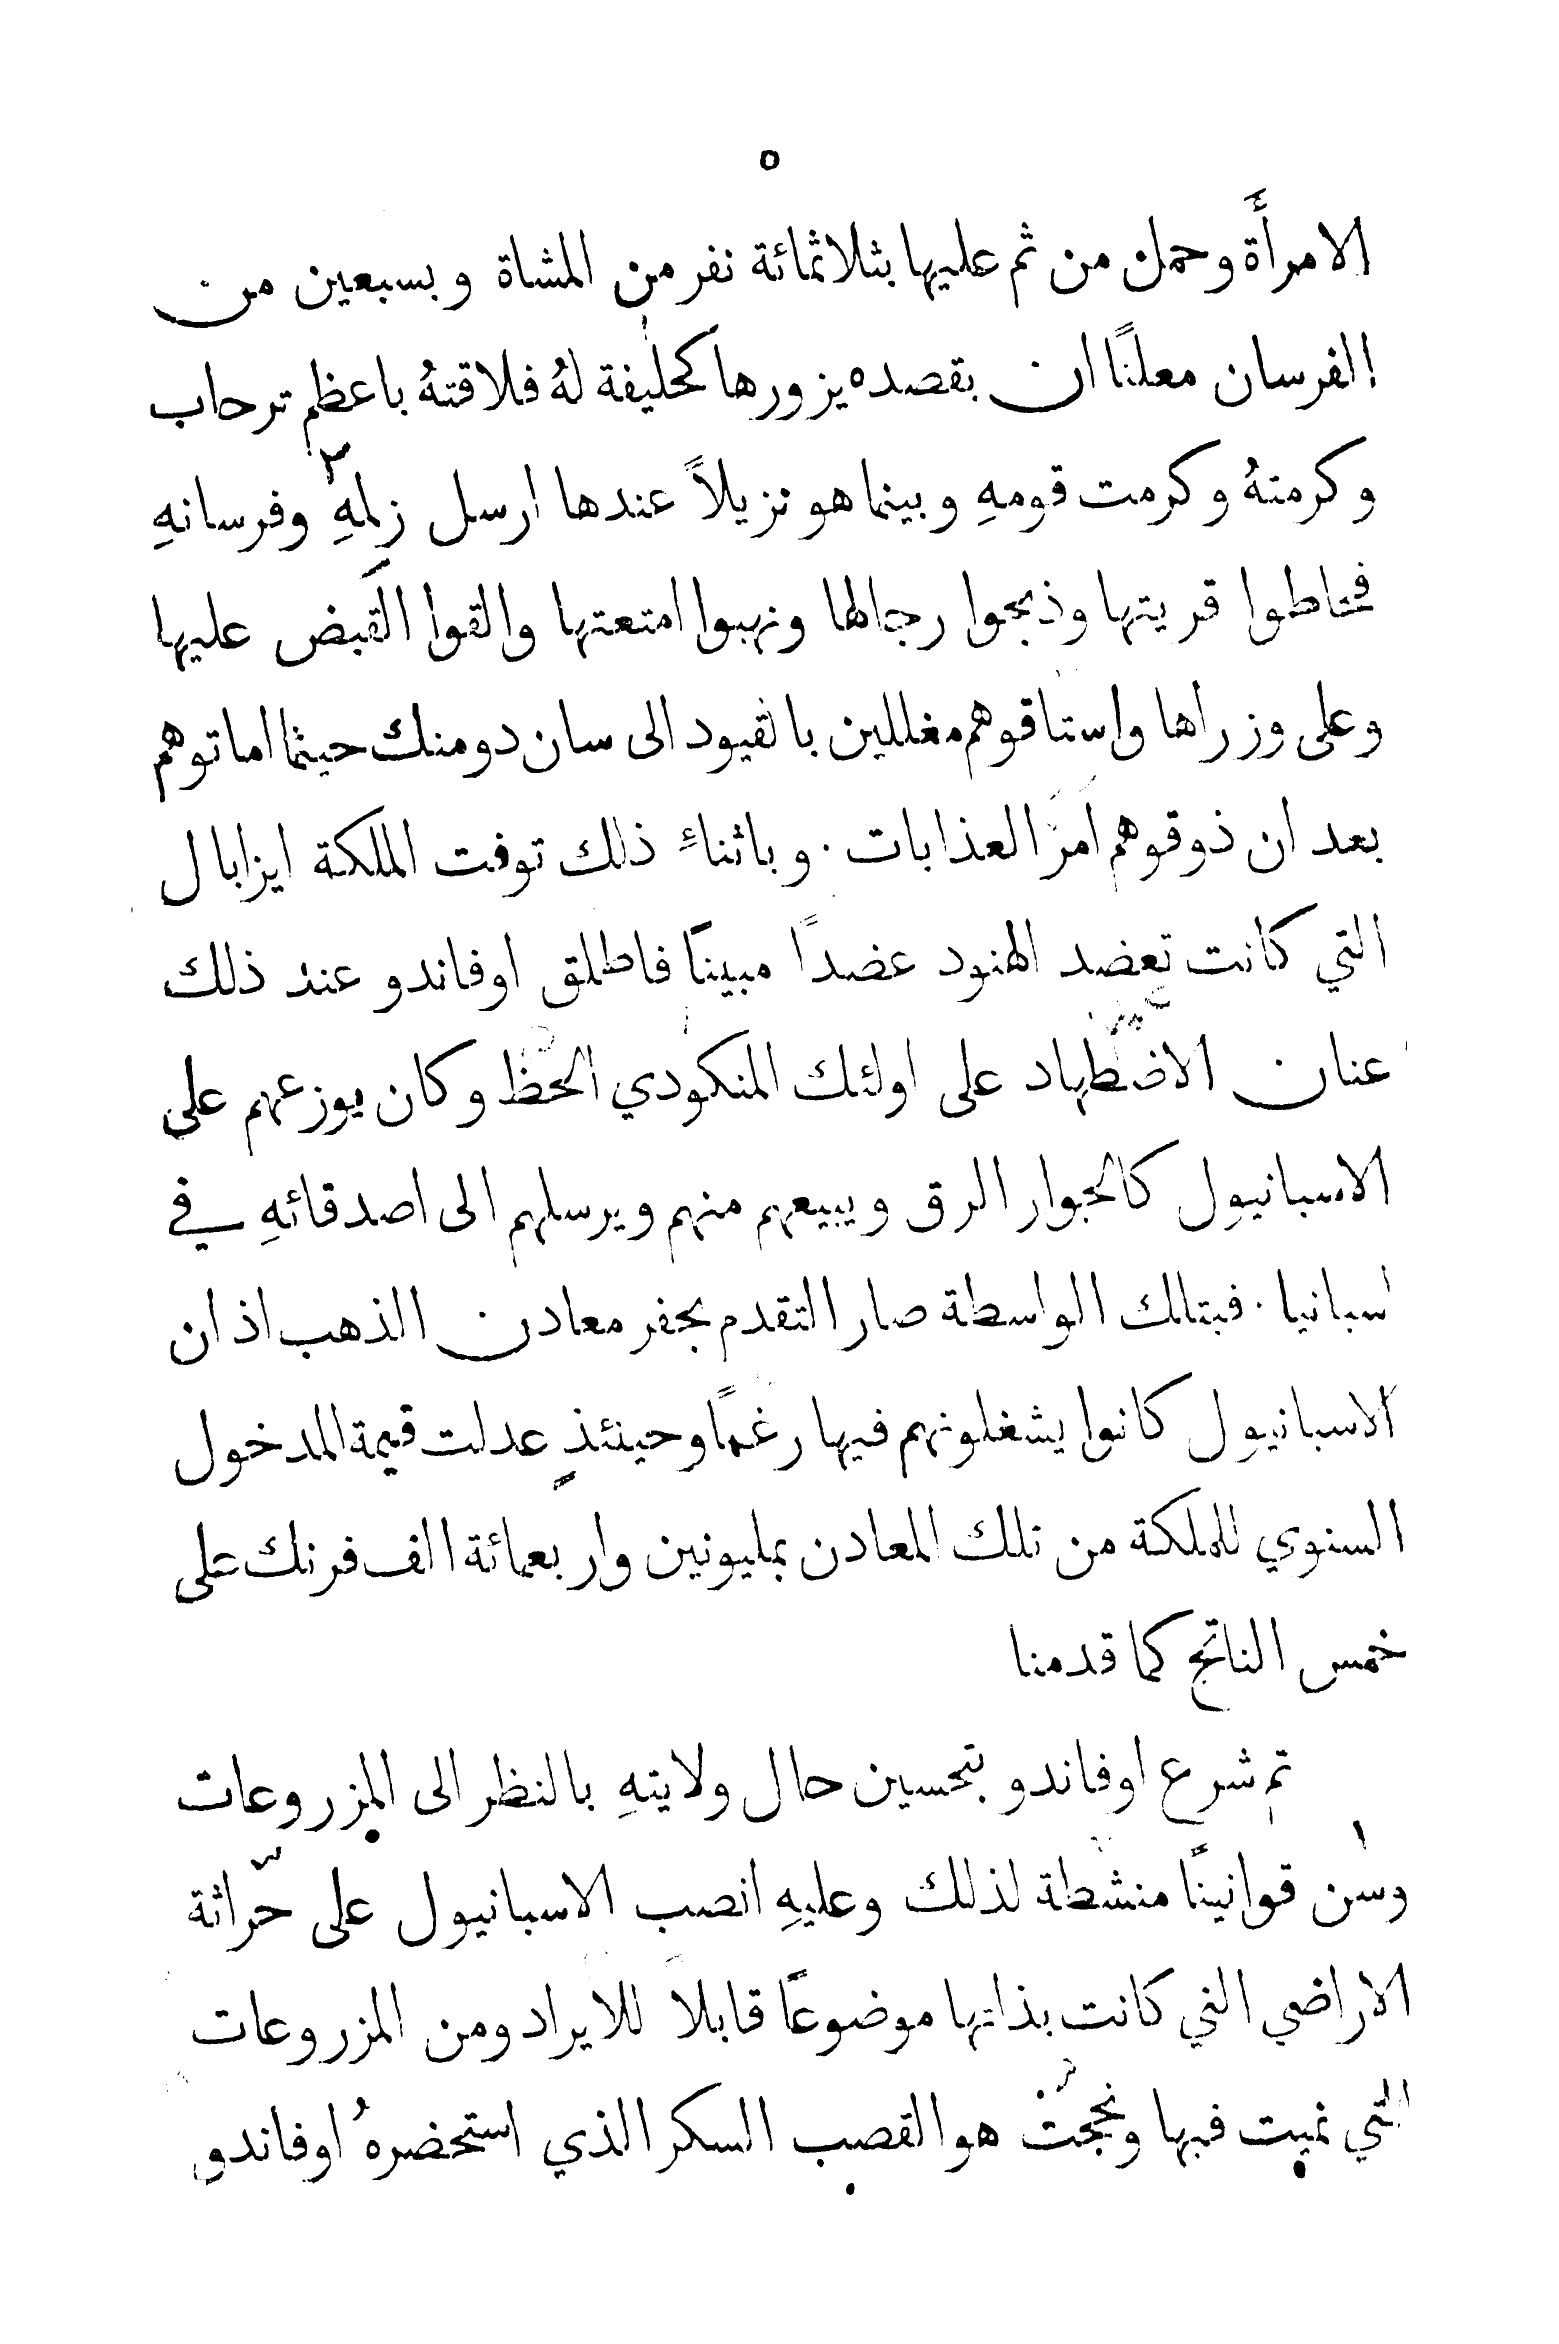 ٥
الامرأة وحمل من ثم عليها بثلاثمائة نفر من المشاة وبسبعين من
الفرسان معلنًا ان بقصده يزورها كحليفة لهُ فلاقتهُ باعظم ترحاب
وكرمتهُ وكرمت قومهِ وبينما هو نزيلاً عندها ارسل زلمهِ وفرسانهِ
فحاطوا قريتها وذبحوا رجالها ونهبوا امتعتها والقوا القبض عليها
وعلى وزراها واستاقوهم مغللين بالقيود الى سان دومنك حيثما اماتوهم
بعد ان ذوقوهم امرّ العذابات . وباثناءِ ذلك توفت الملكة ايزابال
التي كانت تعضد الهنود عضدًا مبينًا فاطلق اوفاندو عند ذلك
عنان الاضطهاد على اولئك المنكودي الحظ وكان يوزعهم على
الاسبانيول كالجوار الرق ويبيعهم منهم ويرسلهم الى اصدقائهِ في
اسبانيا . فبتلك الواسطة صار التقدم بحفر معادن الذهب اذ ان
الاسبانيول كانوا يشغلونهم فيها رغمًا وحينئذٍ عدلت قيمة المدخول
السنوي للملكة من تلك المعادن بمليونين واربعمائة الف فرنك على
خمس الناتج كما قدمنا
ثم شرع اوفاندو بتحسين حال ولايتهِ بالنظر الى المزروعات
وسن قوانينًا منشطة لذلك وعليهِ انصب الاسبانيول على حراثة
الاراضي التي كانت بذاتها موضوعًا قابلاً للايراد ومن المزروعات
التي نميت فيها ونجحت هو القصب السكر الذي استحضرهُ اوفاندو